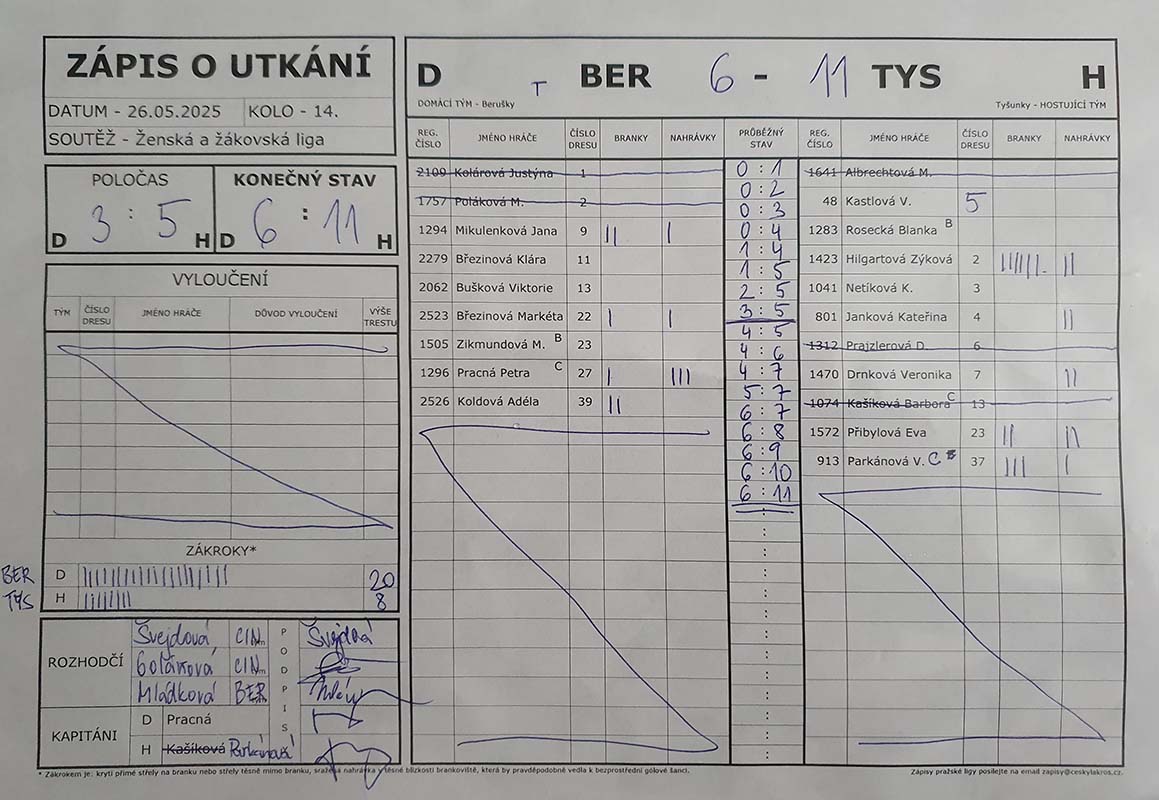 ZÁPIS O UTKÁNÍ
DATUM - 26.05.2025 KOLO - 14.
SOUTĚŽ - Ženská a žákovská liga
POLOČAS KONEČNÝ STAV
D 3 : 5 H D 6 : 11 H
VYLOUČENÍ
TÝM ČÍSLO DRESU JMÉNO HRÁČE DŮVOD VYLOUČENÍ VÝŠE TRESTU
ZÁKROKY*
BER D 20
TYS H 8
ROZHODČÍ Švejdová CIN Švejdová
CIN
Mládková BER
PODPIS
KAPITÁNI D Pracná
H Kašíková Parkánová
D T BER 6 - 11 TYS H
DOMÁCÍ TÝM - Berušky Tyšunky - HOSTUJÍCÍ TÝM
REG. ČÍSLO JMÉNO HRÁČE ČÍSLO DRESU BRANKY NAHRÁVKY PRŮBĚŽNÝ STAV REG. ČÍSLO JMÉNO HRÁČE ČÍSLO DRESU BRANKY NAHRÁVKY
2109 Kolárová Justýna 1
1757 Poláková M. 2
1294 Mikulenková Jana 9 || |
2279 Březinová Klára 11
2062 Bušková Viktorie 13
2523 Březinová Markéta 22 | |
1505 Zikmundová M. B 23
1296 Pracná Petra C 27 | |||
2526 Koldová Adéla 39 ||
0 : 1
0 : 2
0 : 3
0 : 4
1 : 4
1 : 5
2 : 5
3 : 5
4 : 5
4 : 6
4 : 7
5 : 7
6 : 7
6 : 8
6 : 9
6 : 10
6 : 11
1641 Albrechtová M.
48 Kastlová V. 5
1283 Rosecká Blanka B
1423 Hilgartová Zýková 2 |||||| ||
1041 Netíková K. 3
801 Janková Kateřina 4 ||
1312 Prajzlerová D. 6
1470 Drnková Veronika 7 ||
1074 Kašíková Barbora C 13
1572 Přibylová Eva 23 || ||
913 Parkánová V. C B 37 ||| |
* Zákrokem je: krytí přímé střely na branku nebo střely těsně mimo branku, sražená nahrávka v těsné blízkosti brankoviště, která by pravděpodobně vedla k bezprostřední gólové šanci.
Zápisy pražské ligy posílejte na email zapisy@ceskylakros.cz.